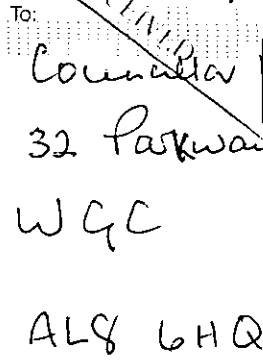 To:
Councillor
32 Parkwa
WGC
AL8 6HQ